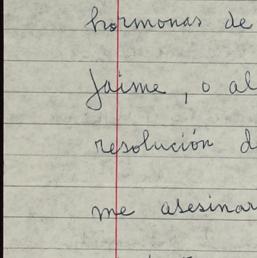 hormonas de
Jaime, o al
resolución d
me asesinar